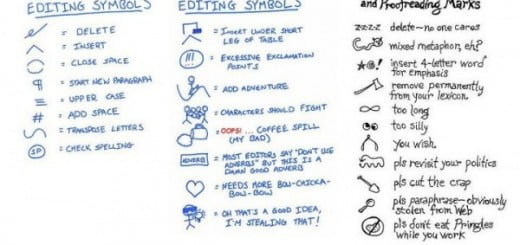 EDITING SYMBOLS
= DELETE
= INSERT
= CLOSE SPACE
¶ = START NEW PARAGRAPH
≡ = UPPER CASE
# = ADD SPACE
= TRANSPOSE LETTERS
SP = CHECK SPELLING
EDITING SYMBOLS
= INSERT UNDER SHORT
LEG OF TABLE
!!! = EXCESSIVE EXCLAMATION
POINTS
= ADD ADVENTURE
= CHARACTERS SHOULD FIGHT
= OOPS! ... COFFEE SPILL
(MY BAD)
ADVERB = MOST EDITORS SAY "DON'T USE
ADVERBS" BUT THIS IS A
DAMN GOOD ADVERB
= NEEDS MORE BOW-CHICKA-
BOW-BOW
= OH THAT'S A GOOD IDEA,
I'M STEALING THAT!
and Proofreading Marks
zzzz delete—no one cares
mixed metaphor, eh?
*@!; insert 4-letter word
for emphasis
remove permanently
from your lexicon.
too long
too silly
you wish
pls revisit your politics
pls cut the crap
pls paraphrase—obviously
stolen from Web
pls don't eat Pringles
while you work